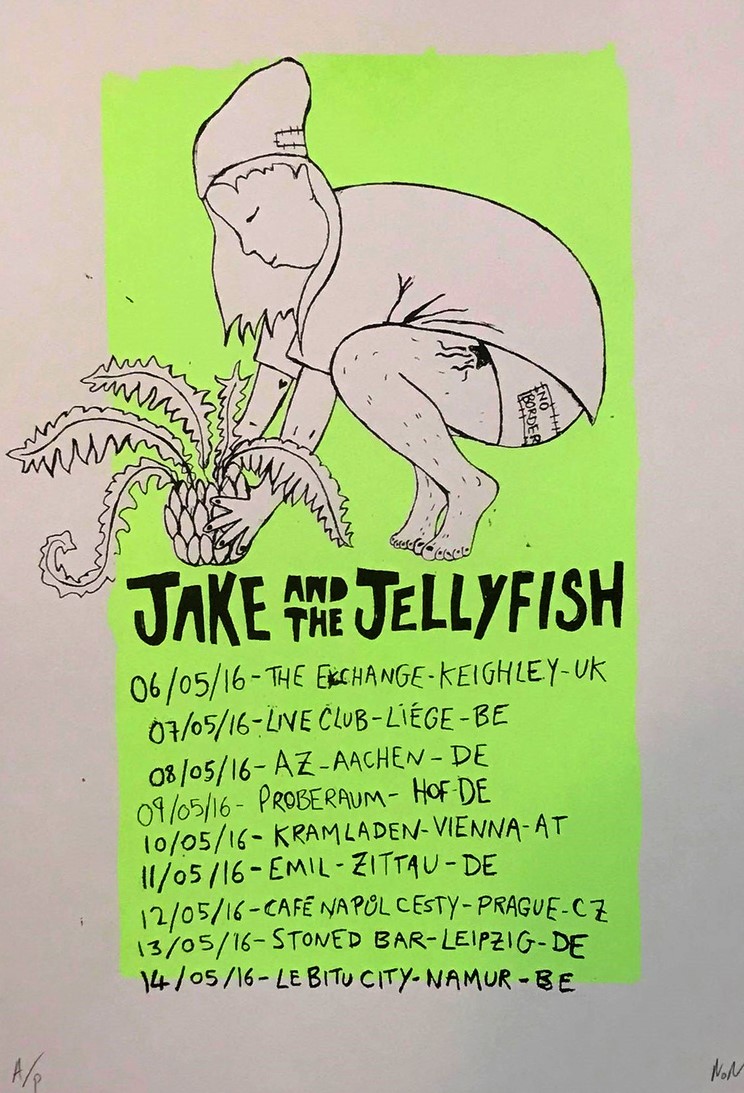 NO
BORDER
JAKE AND THE JELLYFISH
06/05/16-THE EXCHANGE-KEIGHLEY-UK
07/05/16-LIVE CLUB-LIÉGE-BE
08/05/16-AZ-AACHEN-DE
09/05/16-PROBERAUM-HOF-DE
10/05/16-KRAMLADEN-VIENNA-AT
11/05/16-EMIL-ZITTAU-DE
12/05/16-CAFÉ NA PŮL CESTY-PRAGUE-CZ
13/05/16-STONED BAR-LEIPZIG-DE
14/05/16-LE BITU CITY-NAMUR-BE
A/P
NoN